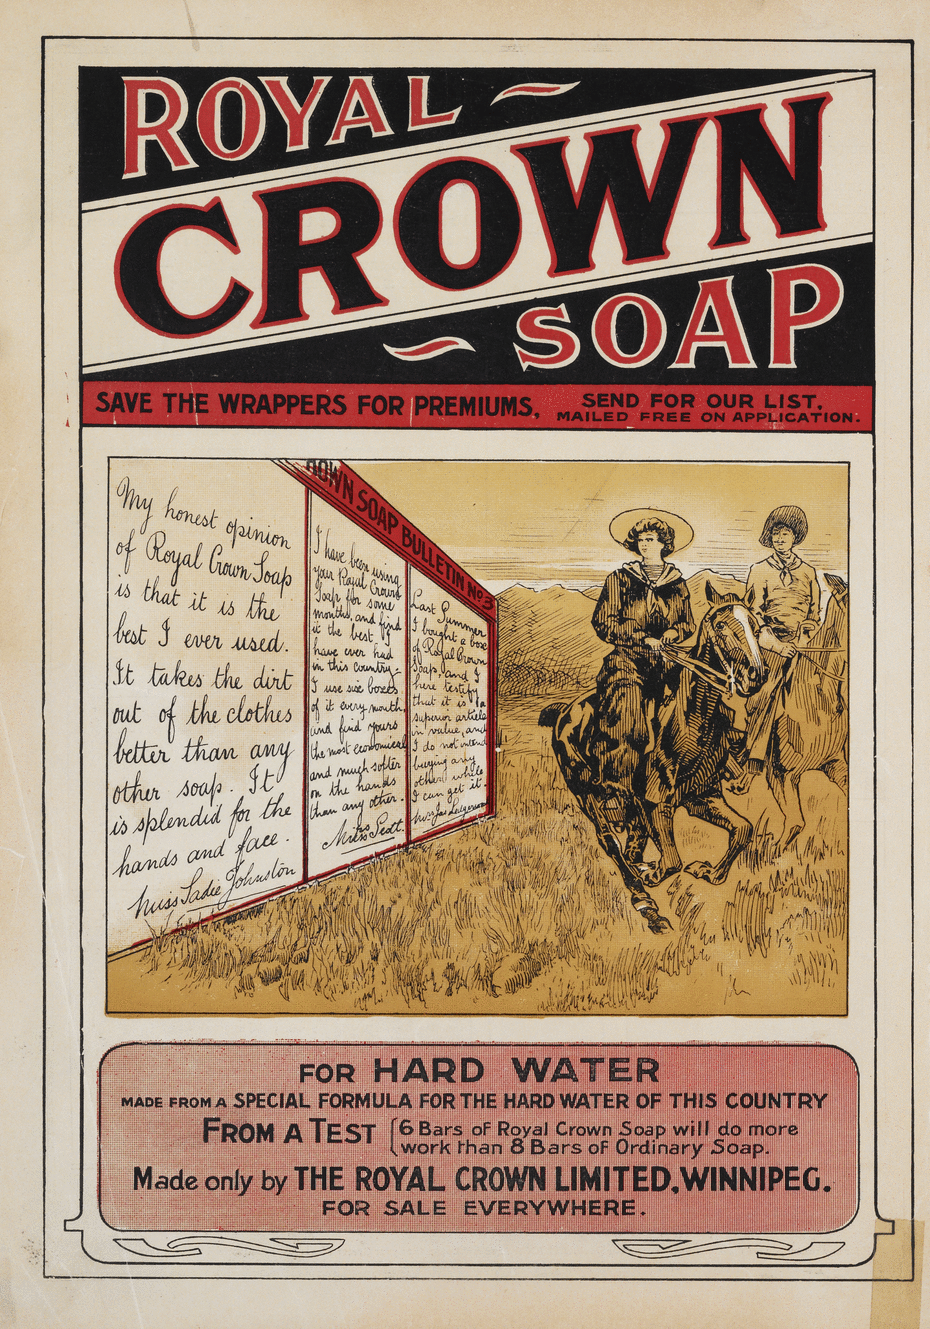 ROYAL
CROWN
SOAP
SAVE THE WRAPPERS FOR PREMIUMS.
SEND FOR OUR LIST,
MAILED FREE ON APPLICATION.
OWN SOAP BULLETIN No 3
My honest opinion
of Royal Crown Soap
is that it is the
best I ever used.
It takes the dirt
out of the clothes
better than any
other soap. It
is splendid for the
hands and face.
Miss Sadie Johnston
I have been using
your Royal Crown
Soap for some
months, and find
it the best I
have ever had
in this country.
I use six boxes
of it every month,
and find yours
the most economical
and much softer
on the hands
than any other.
Scott.
Last Summer
I bought a box
of Royal Crown
Soap, and I
here testify
that it is a
superior article
in value, and
I do not intend
buying any
other while
I can get it.
Mrs Jas
FOR HARD WATER
MADE FROM A SPECIAL FORMULA FOR THE HARD WATER OF THIS COUNTRY
FROM A TEST
6 Bars of Royal Crown Soap will do more
work than 8 Bars of Ordinary Soap.
Made only by THE ROYAL CROWN LIMITED, WINNIPEG.
FOR SALE EVERYWHERE.